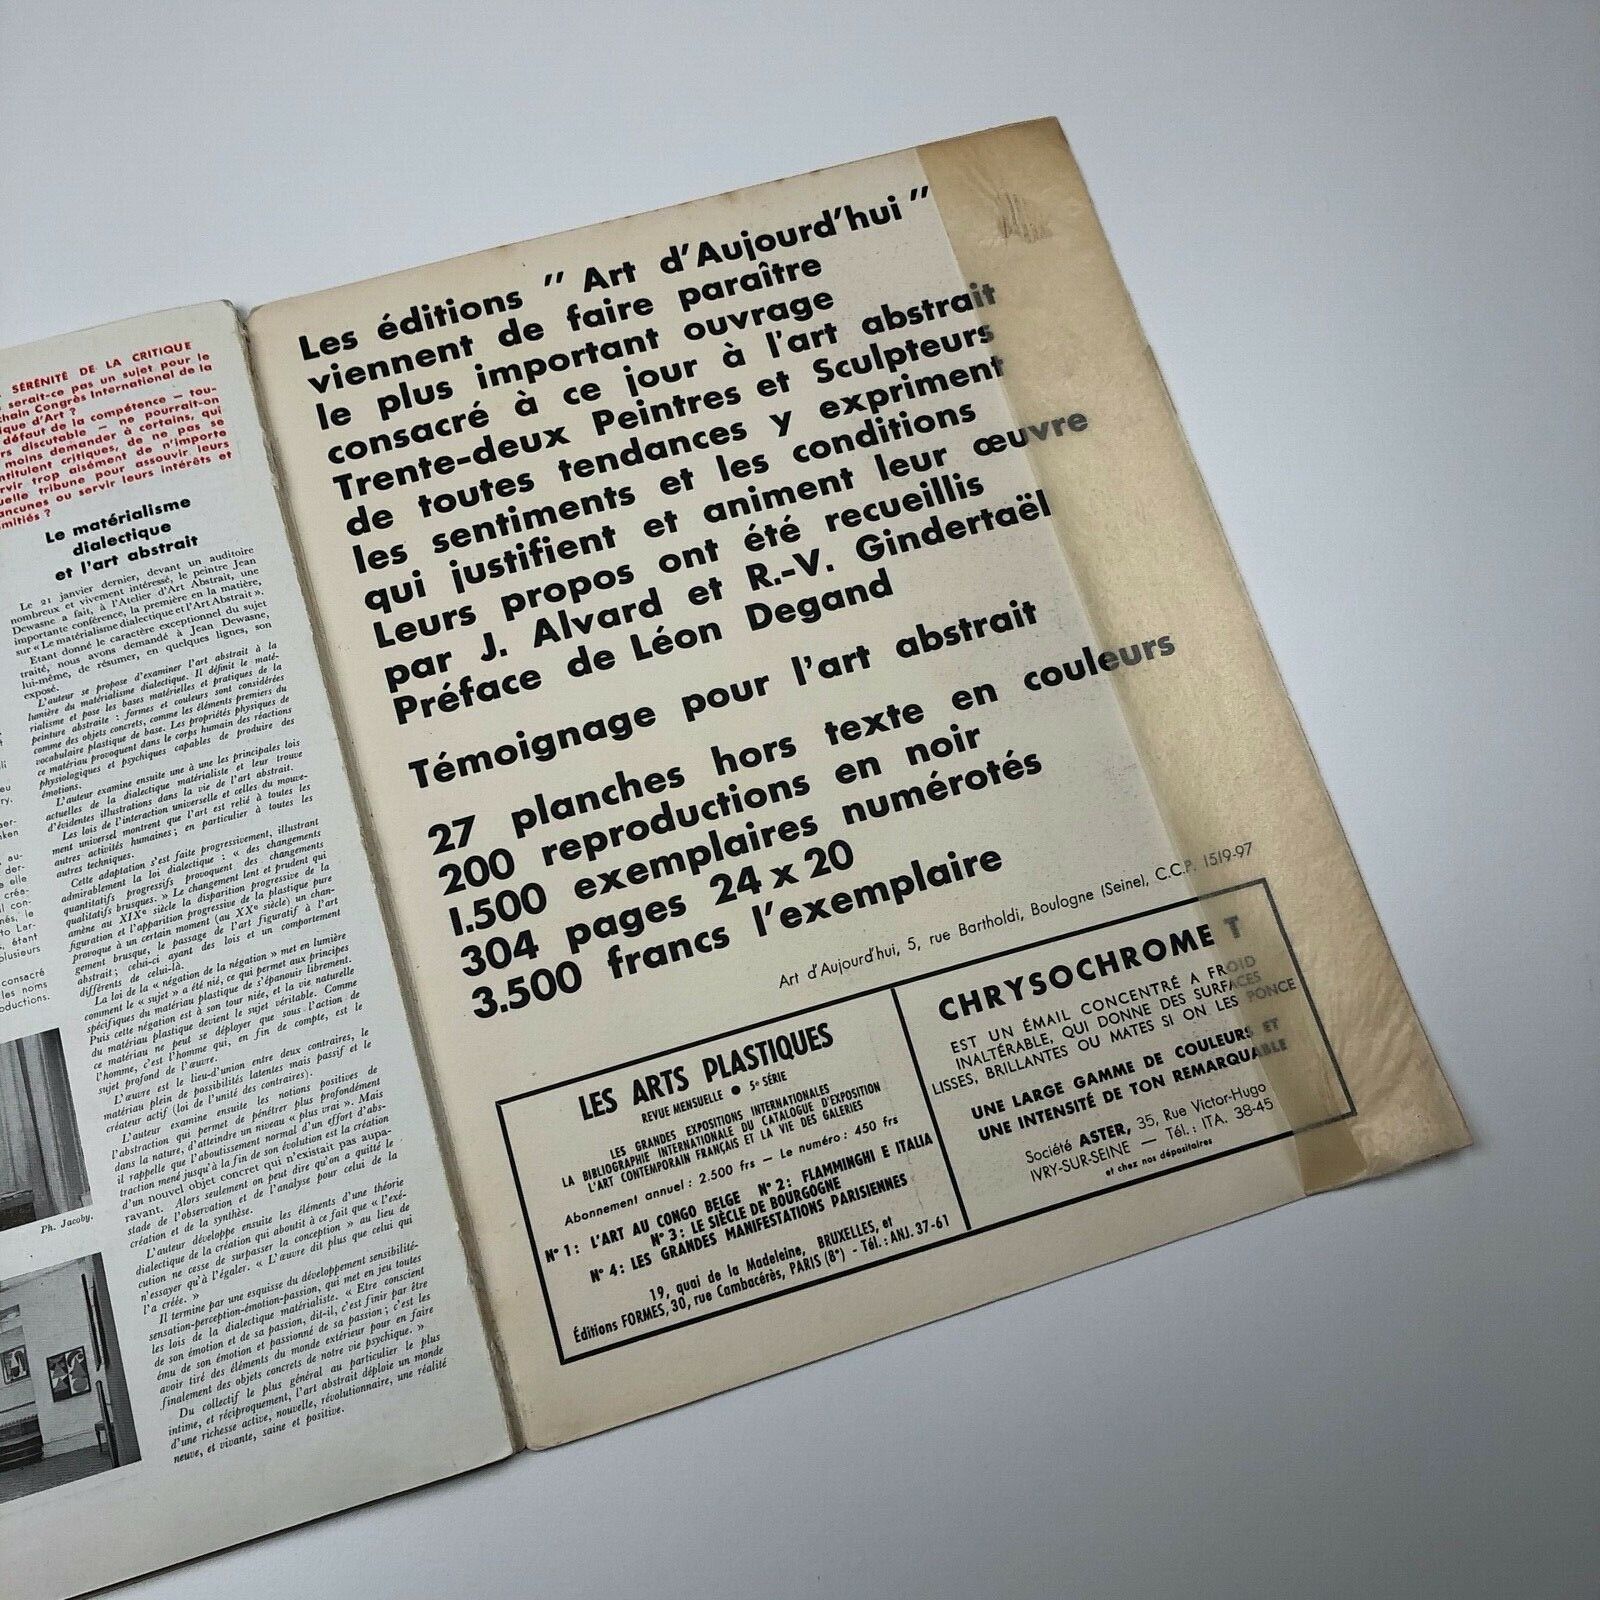 SÉRÉNITÉ DE LA CRITIQUE
serait-ce pas un sujet pour le
chain Congrès International de la
ique d'Art ?
défaut de la compétence — tou-
rs discutable — ne pourrait-on
moins demander à certains, qui
ntitulent critiques, de ne pas se
rvir trop aisément de n'importe
uelle tribune pour assouvir leurs
ancunes ou servir leurs intérêts et
mitiés ?
Le matérialisme
dialectique
et l'art abstrait
Le 21 janvier dernier, devant un auditoire
nombreux et vivement intéressé, le peintre Jean
Dewasne a fait, à l'Atelier d'Art Abstrait, une
importante conférence, la première en la matière,
sur « Le matérialisme dialectique et l'Art Abstrait ».
Etant donné le caractère exceptionnel du sujet
traité, nous avons demandé à Jean Dewasne,
lui-même, de résumer, en quelques lignes, son
exposé.
L'auteur se propose d'examiner l'art abstrait à la
lumière du matérialisme dialectique. Il définit le maté-
rialisme et pose les bases matérielles et pratiques de la
peinture abstraite : formes et couleurs sont considérées
comme des objets concrets, comme les éléments premiers du
vocabulaire plastique de base. Les propriétés physiques de
ce matériau provoquent dans le corps humain des réactions
physiologiques et psychiques capables de produire des
émotions.
L'auteur examine ensuite une à une les principales lois
actuelles de la dialectique matérialiste et leur trouve
d'évidentes illustrations dans la vie de l'art abstrait.
Les lois de l'interaction universelle et celles du mouve-
ment universel montrent que l'art est relié à toutes les
autres activités humaines ; en particulier à toutes les
autres techniques.
Cette adaptation s'est faite progressivement, illustrant
admirablement la loi dialectique : « des changements
quantitatifs progressifs provoquent des changements
qualitatifs brusques. » Le changement lent et prudent qui
amène au XIXe siècle la disparition progressive de la
figuration et l'apparition progressive de la plastique pure
provoque à un certain moment (au XXe siècle) un chan-
gement brusque, le passage de l'art figuratif à l'art
abstrait ; celui-ci ayant des lois et un comportement
différents de celui-là.
La loi de la « négation de la négation » met en lumière
comment le « sujet » a été nié, ce qui permet aux principes
spécifiques du matériau plastique de s'épanouir librement.
Puis cette négation est à son tour niée, et la vie naturelle
du matériau plastique devient le sujet véritable. Comme
ce matériau ne peut se déployer que sous l'action de
l'homme, c'est l'homme qui, en fin de compte, est le
sujet profond de l'œuvre.
L'œuvre est le lieu-d'union entre deux contraires, le
matériau plein de possibilités latentes mais passif et le
créateur actif (loi de l'unité des contraires).
L'auteur examine ensuite les notions positives de
l'abstraction qui permet de pénétrer plus profondément
dans la nature, d'atteindre un niveau « plus vrai ». Mais
il rappelle que l'aboutissement normal d'un effort d'abs-
traction mené jusqu'à la fin de son évolution est la création
d'un nouvel objet concret qui n'existait pas aupa-
ravant. Alors seulement on peut dire qu'on a quitté le
stade de l'observation et de l'analyse pour celui de la
création et de la synthèse.
L'auteur développe ensuite les éléments d'une théorie
dialectique de la création qui aboutit à ce fait que « l'exé-
cution ne cesse de surpasser la conception » au lieu de
n'essayer qu'à l'égaler. « L'œuvre dit plus que celui qui
l'a créée. »
Il termine par une esquisse du développement sensibilité-
sensation-perception-émotion-passion, qui met en jeu toutes
les lois de la dialectique matérialiste. « Etre conscient
de son émotion et de sa passion, dit-il, c'est finir par être
ému de son émotion et passionné de sa passion ; c'est les
avoir tiré des éléments du monde extérieur pour en faire
finalement des objets concrets de notre vie psychique. »
Du collectif le plus général au particulier le plus
intime, et réciproquement, l'art abstrait déploie un monde
d'une richesse active, nouvelle, révolutionnaire, une réalité
neuve, et vivante, saine et positive.
consacré
les noms
oductions.
Ph. Jacoby.
Les éditions " Art d'Aujourd'hui "
viennent de faire paraître
le plus important ouvrage
consacré à ce jour à l'art abstrait
Trente-deux Peintres et Sculpteurs
de toutes tendances y expriment
les sentiments et les conditions
qui justifient et animent leur œuvre
Leurs propos ont été recueillis
par J. Alvard et R.-V. Gindertaël
Préface de Léon Degand
Témoignage pour l'art abstrait
27 planches hors texte en couleurs
200 reproductions en noir
1.500 exemplaires numérotés
304 pages 24 x 20
3.500 francs l'exemplaire
Art d'Aujourd'hui, 5, rue Bartholdi, Boulogne (Seine), C.C.P. 1519-97
LES ARTS PLASTIQUES
REVUE MENSUELLE • 5e SÉRIE
LES GRANDES EXPOSITIONS INTERNATIONALES
LA BIBLIOGRAPHIE INTERNATIONALE DU CATALOGUE D'EXPOSITION
L'ART CONTEMPORAIN FRANÇAIS ET LA VIE DES GALERIES
Abonnement annuel : 2.500 frs — Le numéro : 450 frs
N° 1 : L'ART AU CONGO BELGE N° 2 : FLAMMINGHI E ITALIA
N° 3 : LE SIÈCLE DE BOURGOGNE
N° 4 : LES GRANDES MANIFESTATIONS PARISIENNES
19, quai de la Madeleine, BRUXELLES, et
Éditions FORMES, 30, rue Cambacérès, PARIS (8e) - Tél. : ANJ. 37-61
CHRYSOCHROME T
EST UN ÉMAIL CONCENTRÉ A FROID
INALTÉRABLE, QUI DONNE DES SURFACES
LISSES, BRILLANTES OU MATES SI ON LES PONCE
UNE LARGE GAMME DE COULEURS ET
UNE INTENSITÉ DE TON REMARQUABLE
Société ASTER, 35, Rue Victor-Hugo
IVRY-SUR-SEINE — Tél. : ITA. 38-45
et chez nos dépositaires